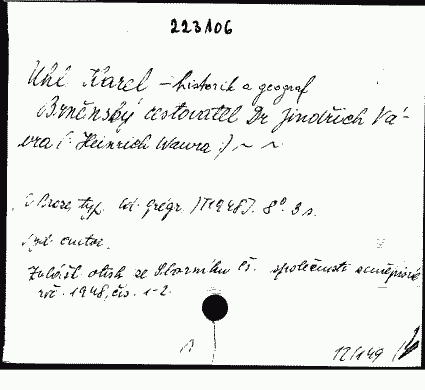 223106
Uhl Karel – historik a geograf
Brněnský cestovatel Dr Jindřich Vá-
vra (: Heinrich Wawra :) ~ ~
V Brně, typ. Ed. Grégr [1948]. 8° 3 s.
Zvlášt. otisk ze Sborníku čs. společnosti zeměpisné
roč. 1948, čís. 1-2.
12/149